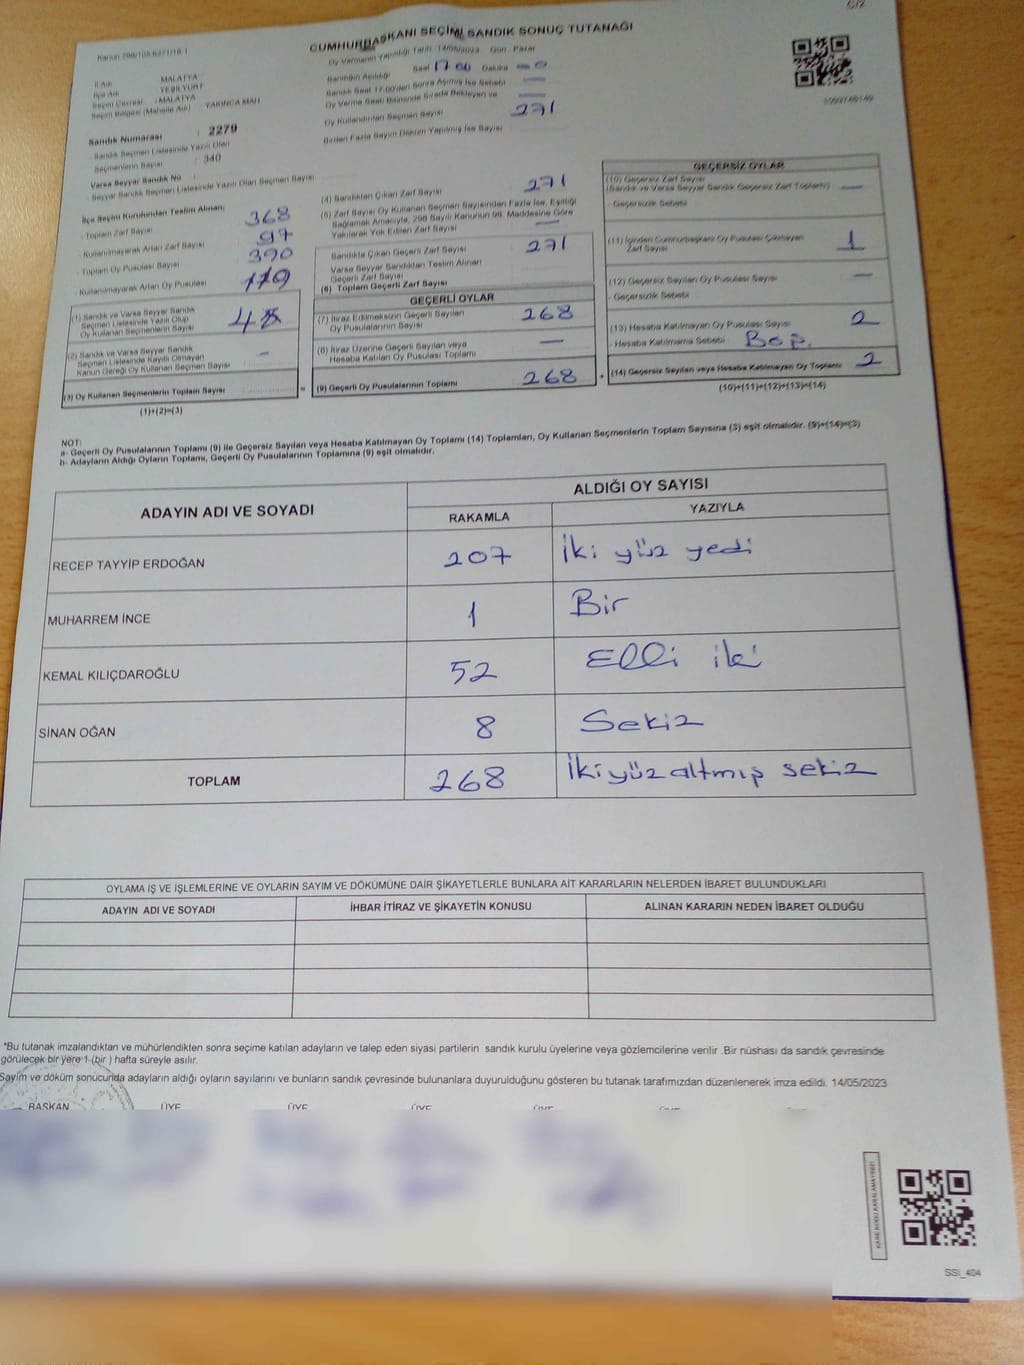 C/2
CUMHURBAŞKANI SEÇİMİ SANDIK SONUÇ TUTANAĞI
Oy Vermenin Yapıldığı Tarih 14/05/2023 Gün Pazar
İl Adı MALATYA
İlçe Adı YEŞİLYURT
Seçim Çevresi : MALATYA
Seçim Bölgesi (Mahalle Adı) YAKINCA MAH.
Sandığın Açıldığı Saat 17.00 Dakika
Sandık Saat 17.00'den Sonra Açılmış İse Sebebi —
Oy Verme Saati Bitiminde Sırada Bekleyen ve
Oy Kullandırılan Seçmen Sayısı 271
Birden Fazla Sayım Döküm Yapılmış İse Sayısı
Sandık Numarası : 2279
Sandık Seçmen Listesinde Yazılı Olan
Seçmenlerin Sayısı : 340
Varsa Seyyar Sandık No
Seyyar Sandık Seçmen Listesinde Yazılı Olan Seçmen Sayısı
İlçe Seçim Kurulundan Teslim Alınan;
- Toplam Zarf Sayısı 368
- Kullanılmayarak Artan Zarf Sayısı 97
- Toplam Oy Pusulası Sayısı 390
- Kullanılmayarak Artan Oy Pusulası 119
(1) Sandık ve Varsa Seyyar Sandık
Seçmen Listesinde Yazılı Olup
Oy Kullanan Seçmenlerin Sayısı
(2) Sandık ve Varsa Seyyar Sandık
Seçmen Listesinde Kayıtlı Olmayan
Kanun Gereği Oy Kullanan Seçmen Sayısı —
(3) Oy Kullanan Seçmenlerin Toplam Sayısı =
(1)+(2)=(3)
(4) Sandıktan Çıkan Zarf Sayısı 271
(5) Zarf Sayısı Oy Kullanan Seçmen Sayısından Fazla İse, Eşitliği
Sağlamak Amacıyla, 298 Sayılı Kanunun 98. Maddesine Göre
Yakılarak Yok Edilen Zarf Sayısı —
Sandıkta Çıkan Geçerli Zarf Sayısı 271
Varsa Seyyar Sandıktan Teslim Alınan
Geçerli Zarf Sayısı
(6) Toplam Geçerli Zarf Sayısı
GEÇERLİ OYLAR
(7) İtiraz Edilmeksizin Geçerli Sayılan
Oy Pusulalarının Sayısı 268
(8) İtiraz Üzerine Geçerli Sayılan veya
Hesaba Katılan Oy Pusulası Toplamı —
(9) Geçerli Oy Pusulalarının Toplamı 268 +
GEÇERSİZ OYLAR
(10) Geçersiz Zarf Sayısı
(Sandık ve Varsa Seyyar Sandık Geçersiz Zarf Toplamı) —
- Geçersizlik Sebebi
(11) İçinden Cumhurbaşkanı Oy Pusulası Çıkmayan
Zarf Sayısı 1
(12) Geçersiz Sayılan Oy Pusulası Sayısı —
- Geçersizlik Sebebi
(13) Hesaba Katılmayan Oy Pusulası Sayısı 2
- Hesaba Katılmama Sebebi
(14) Geçersiz Sayılan veya Hesaba Katılmayan Oy Toplamı 2
(10)+(11)+(12)+(13)=(14)
NOT:
a- Geçerli Oy Pusulalarının Toplamı (9) ile Geçersiz Sayılan veya Hesaba Katılmayan Oy Toplamı (14) Toplamları, Oy Kullanan Seçmenlerin Toplam Sayısına (3) eşit olmalıdır. (9)+(14)=(3)
b- Adayların Aldığı Oyların Toplamı, Geçerli Oy Pusulalarının Toplamına (9) eşit olmalıdır.
ADAYIN ADI VE SOYADI ALDIĞI OY SAYISI
RAKAMLA YAZIYLA
RECEP TAYYİP ERDOĞAN 207 İki yüz yedi
MUHARREM İNCE 1 Bir
KEMAL KILIÇDAROĞLU 52 Elli iki
SİNAN OĞAN 8 Sekiz
TOPLAM 268 İkiyüzaltmış sekiz
OYLAMA İŞ VE İŞLEMLERİNE VE OYLARIN SAYIM VE DÖKÜMÜNE DAİR ŞİKAYETLERLE BUNLARA AİT KARARLARIN NELERDEN İBARET BULUNDUKLARI
ADAYIN ADI VE SOYADI İHBAR İTİRAZ VE ŞİKAYETİN KONUSU ALINAN KARARIN NEDEN İBARET OLDUĞU
*Bu tutanak imzalandıktan ve mühürlendikten sonra seçime katılan adayların ve talep eden siyasi partilerin sandık kurulu üyelerine veya gözlemcilerine verilir .Bir nüshası da sandık çevresinde
görülecek bir yere 1 (bir ) hafta süreyle asılır.
Sayım ve döküm sonucunda adayların aldığı oyların sayılarını ve bunların sandık çevresinde bulunanlara duyurulduğunu gösteren bu tutanak tarafımızdan düzenlenerek imza edildi. 14/05/2023
BAŞKAN ÜYE ÜYE ÜYE ÜYE
KARE KODU KARALAMAYINIZ!
SSİ_404